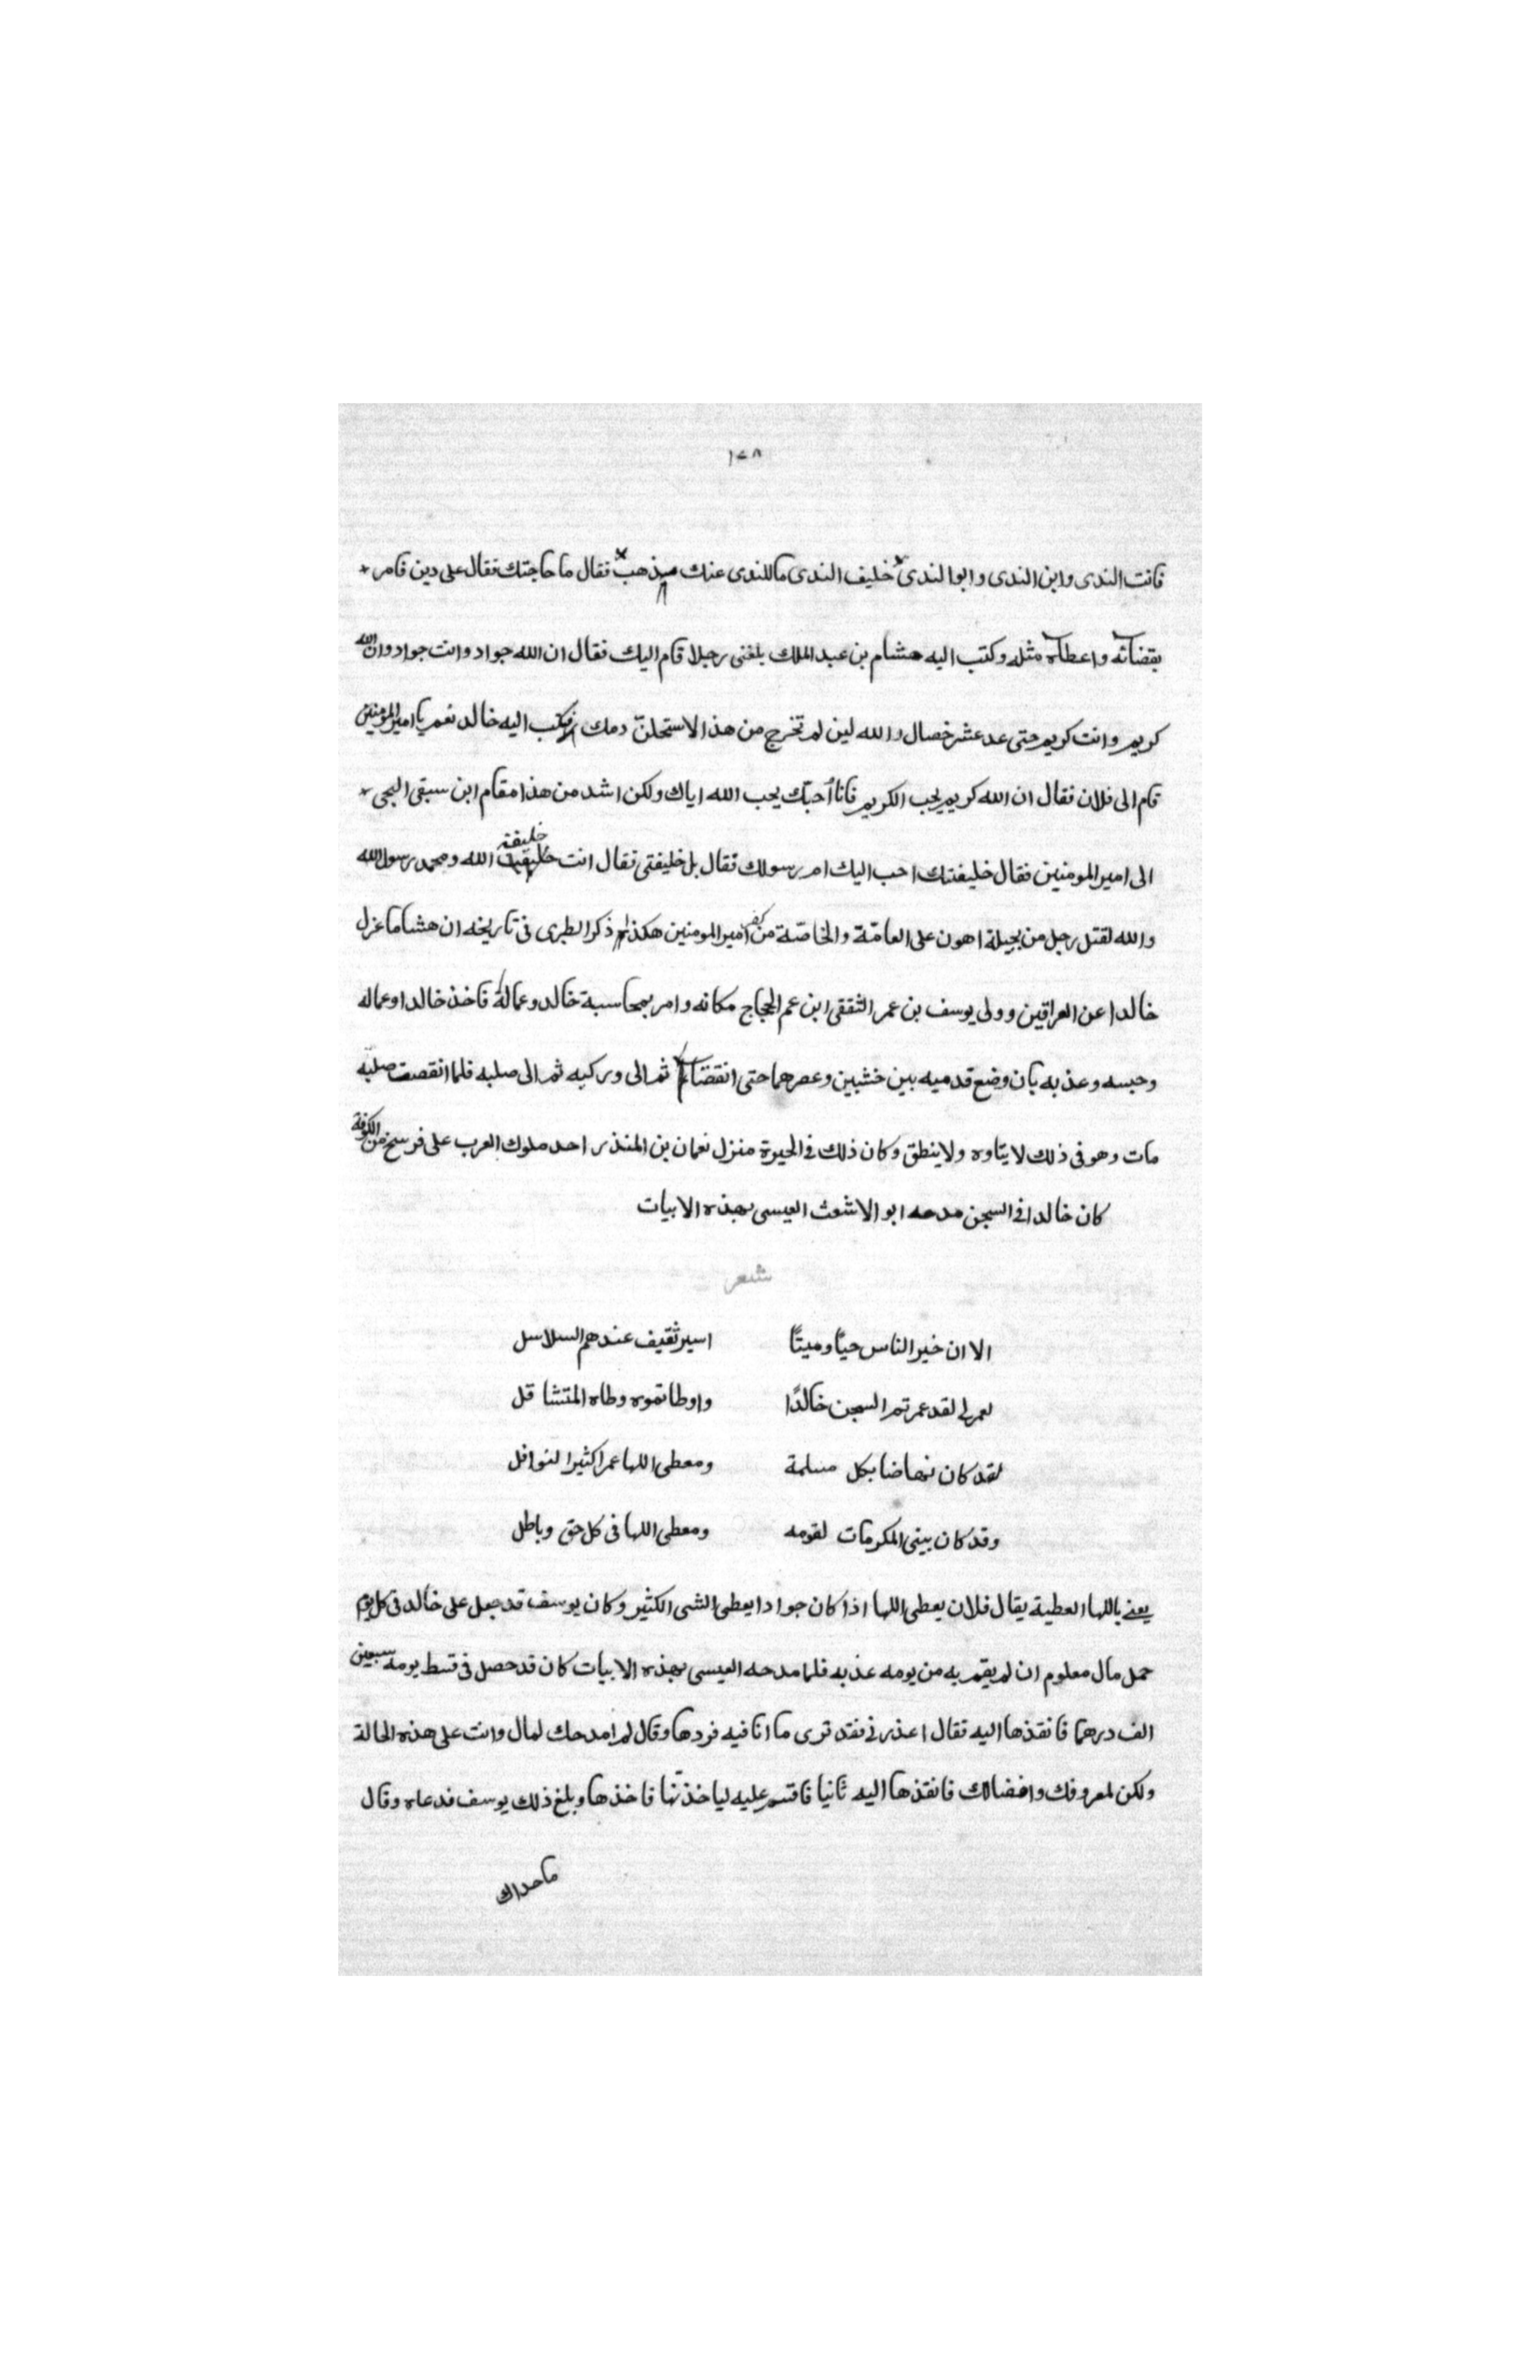 ١٤٨
فانت الندى وابن الندى وابوا لندى خليف الندى ما للندى عنك مذهب فقال ما حاجتك فقال على دين فامر
بقضائه واعطاه مثله وكتب اليه هشام بن عبد الملك بلغنى رجلا قام اليك فقال ان الله جواد وانت جواد وان الله
كريم وانت كريم حتى عد عشر خصال والله لين لم تخرج من هذا لاستحلنّ دمك فكتب اليه خالد نعم يا امير المومنين
قام الى فلان فقال ان الله كريم يحب الكريم فانا أحبّك يحب الله اياك ولكن اشد من هذا مقام ابن سبقى البجى
الى امير المومنين فقال خليفتك احب اليك ام رسولك فقال بل خليفتى فقال انت خليفة الله ومحمد رسول الله
والله لقتل رجل من بجيلة اهون على العامّة والخاصّة من كفر امير المومنين هكذا ذكر الطبرى فى تاريخه ان هشاما عزل
خالدا عن العراقين وولى يوسف بن عمر الثقفى ابن عم الحجاج مكانه وامر بمحاسبة خالد وعماله فاخذ خالدا وعماله
وحبسه وعذبه بان وضع قدميه بين خشبين وعصرهما حتى انقضتا ثم الى وركيه ثم الى صلبه فلما انقصت صلبه
مات وهو فى ذلك لا يتاوه ولا ينطق وكان ذلك فى الحيرة منزل نعمان بن المنذر احد ملوك العرب على فرسخ من الكوفة
كان خالدا فى السجن مدحه ابو الاشعث العيسى بهذه الابيات
شعر
الا ان خير الناس حيًا وميتًا اسير ثقيف عندهم السلاسل
لعمرى لقد عمرتم السجن خالدًا واوطاتموه وطاه المتشاقل
لقد كان نهاضا بكل مسلمة ومعطى اللها عمرا كثيرا لنوافل
وقد كان يبنى المكرمات لقومه ومعطى اللها فى كل حق وباطل
يعنى باللها العطية يقال فلان يعطى اللها اذا كان جوادا يعطى الشى الكثير وكان يوسف قد جعل على خالد فى كل يوم
حمل مال معلوم ان لم يقم به من يومه عذبه فلما مدحه العيسى بهذه الابيات كان قد حصل فى قسط يومه سبعين
الف درهما فانفذها اليه فقال اعذرنى فقد ترى ما انا فيه فردها وقال لم امدحك لمال وانت على هذه الحالة
ولكن لمعروفك وافضالك فانفذها اليه ثانيا فاقسم عليه لياخذنّها فاخذها وبلغ ذلك يوسف فدعاه وقال
ما حداك